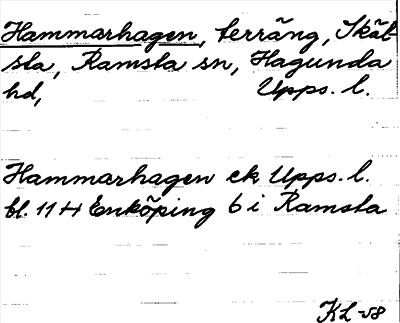 Hammarhagen, terräng, Skät-
sta, Ramsta sn, Hagunda
hd, Upps. l.
Hammarhagen ek Upps. l.
bl. 11 H Enköping 6 i Ramsta
KL -58